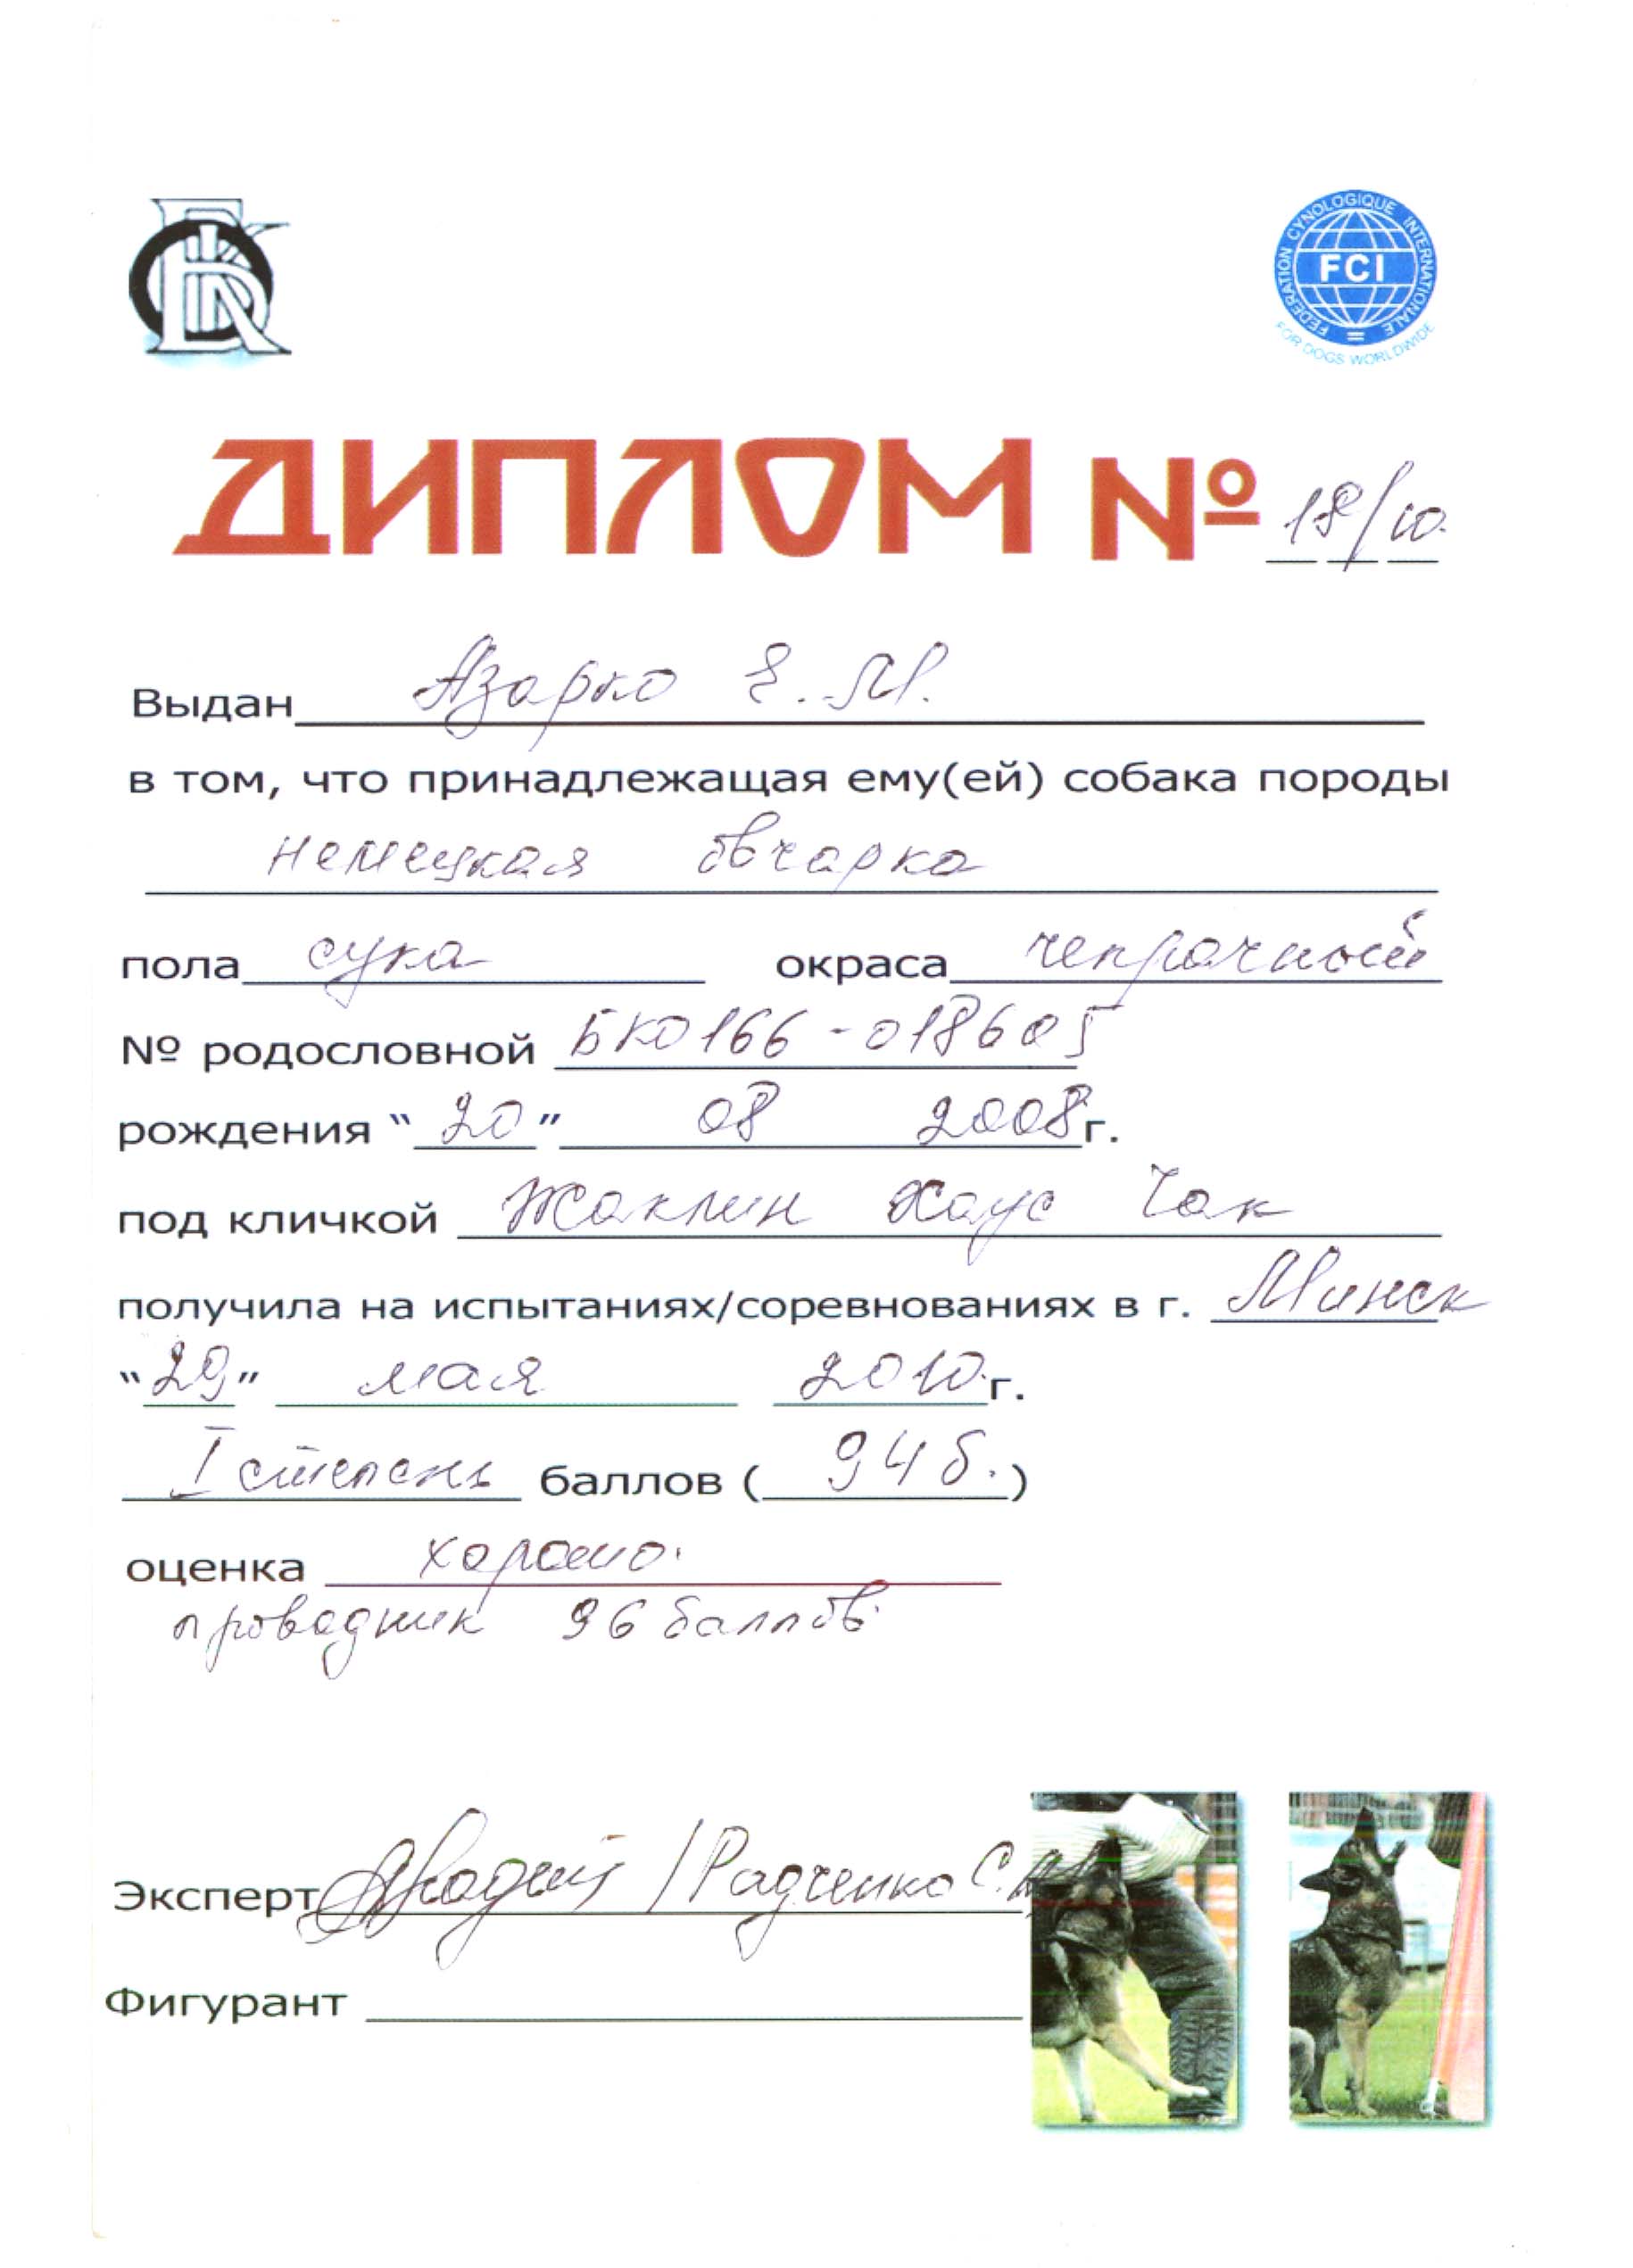 FEDERATION CYNOLOGIQUE INTERNATIONALE
FCI
FOR DOGS WORLDWIDE
ДИПЛОМ № 18/10.
Выдан Азарко Е.М.
в том, что принадлежащая ему(ей) собака породы
немецкая овчарка
пола сука окраса чепрачный
№ родословной БКО166-018605
рождения “20” 08 2008г.
под кличкой Жаклин Хаус Чак
получила на испытаниях/соревнованиях в г. Минск
“29” мая 2010.г.
I степень баллов (94 б.)
оценка хорошо.
проводник 96 баллов
Эксперт /Радченко С.
Фигурант